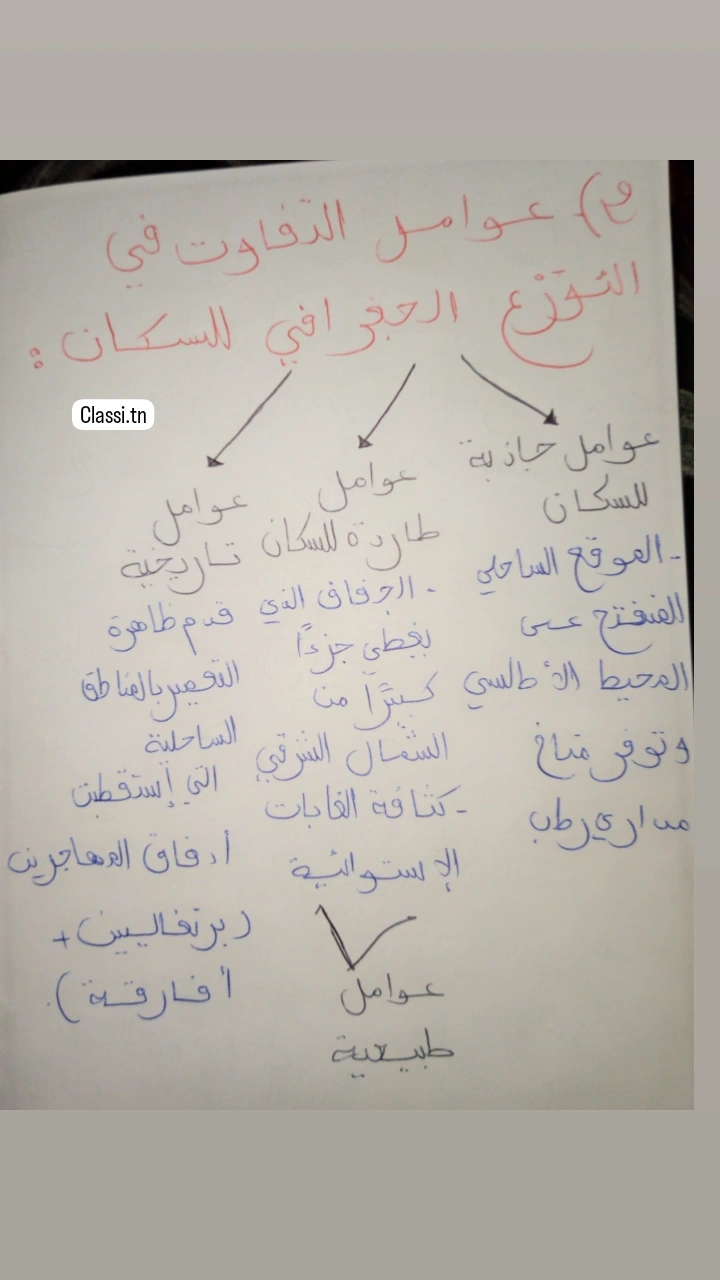 م) عوامل التفاوت في
التوزع الجغرافي للسكان :
Classi.tn
عوامل جاذبة
للسكان
- الموقع الساحلي
المنفتح على
المحيط الأطلسي
وتوفر مناخ
مداري رطب
عوامل
طاردة للسكان
- الجفاف الذي
يغطي جزءًا
كبيرًا من
الشمال الشرقي
- كثافة الغابات
الإستوائية
عوامل
طبيعية
عوامل
تاريخية
قدم ظاهرة
التعمير بالمناطق
الساحلية
التي إستقطبت
أفاق المهاجرين
(برتغاليين +
أفارقة).